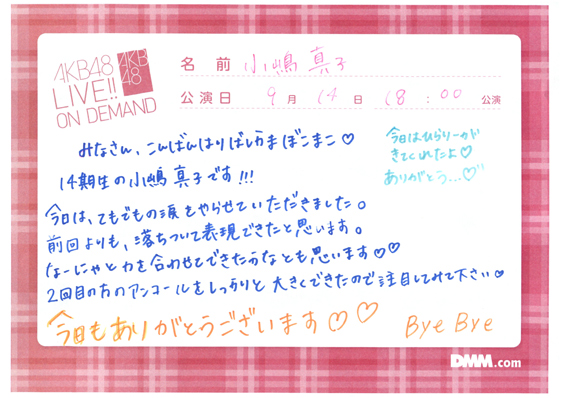 AKB48
LIVE!!
ON DEMAND
AKB
48
名前 小嶋真子
公演日 9月 14日 18:00 公演
みなさん、こんばんはりばしこまぼこまこ♡
今日はひらりーが
きてくれたよ♡
ありがとう...♡
14期生の小嶋真子です!!!
今日は、てもでもの涙をやらせていただきました。
前回よりも、落ちついて表現できたと思います。
なーにゃと力を合わせてできたかなとも思います♡♡
2回目の方のアンコールをしっかりと大きくできたので注目してみて下さい♡
今日もありがとうございます♡♡
Bye Bye
DMM.com